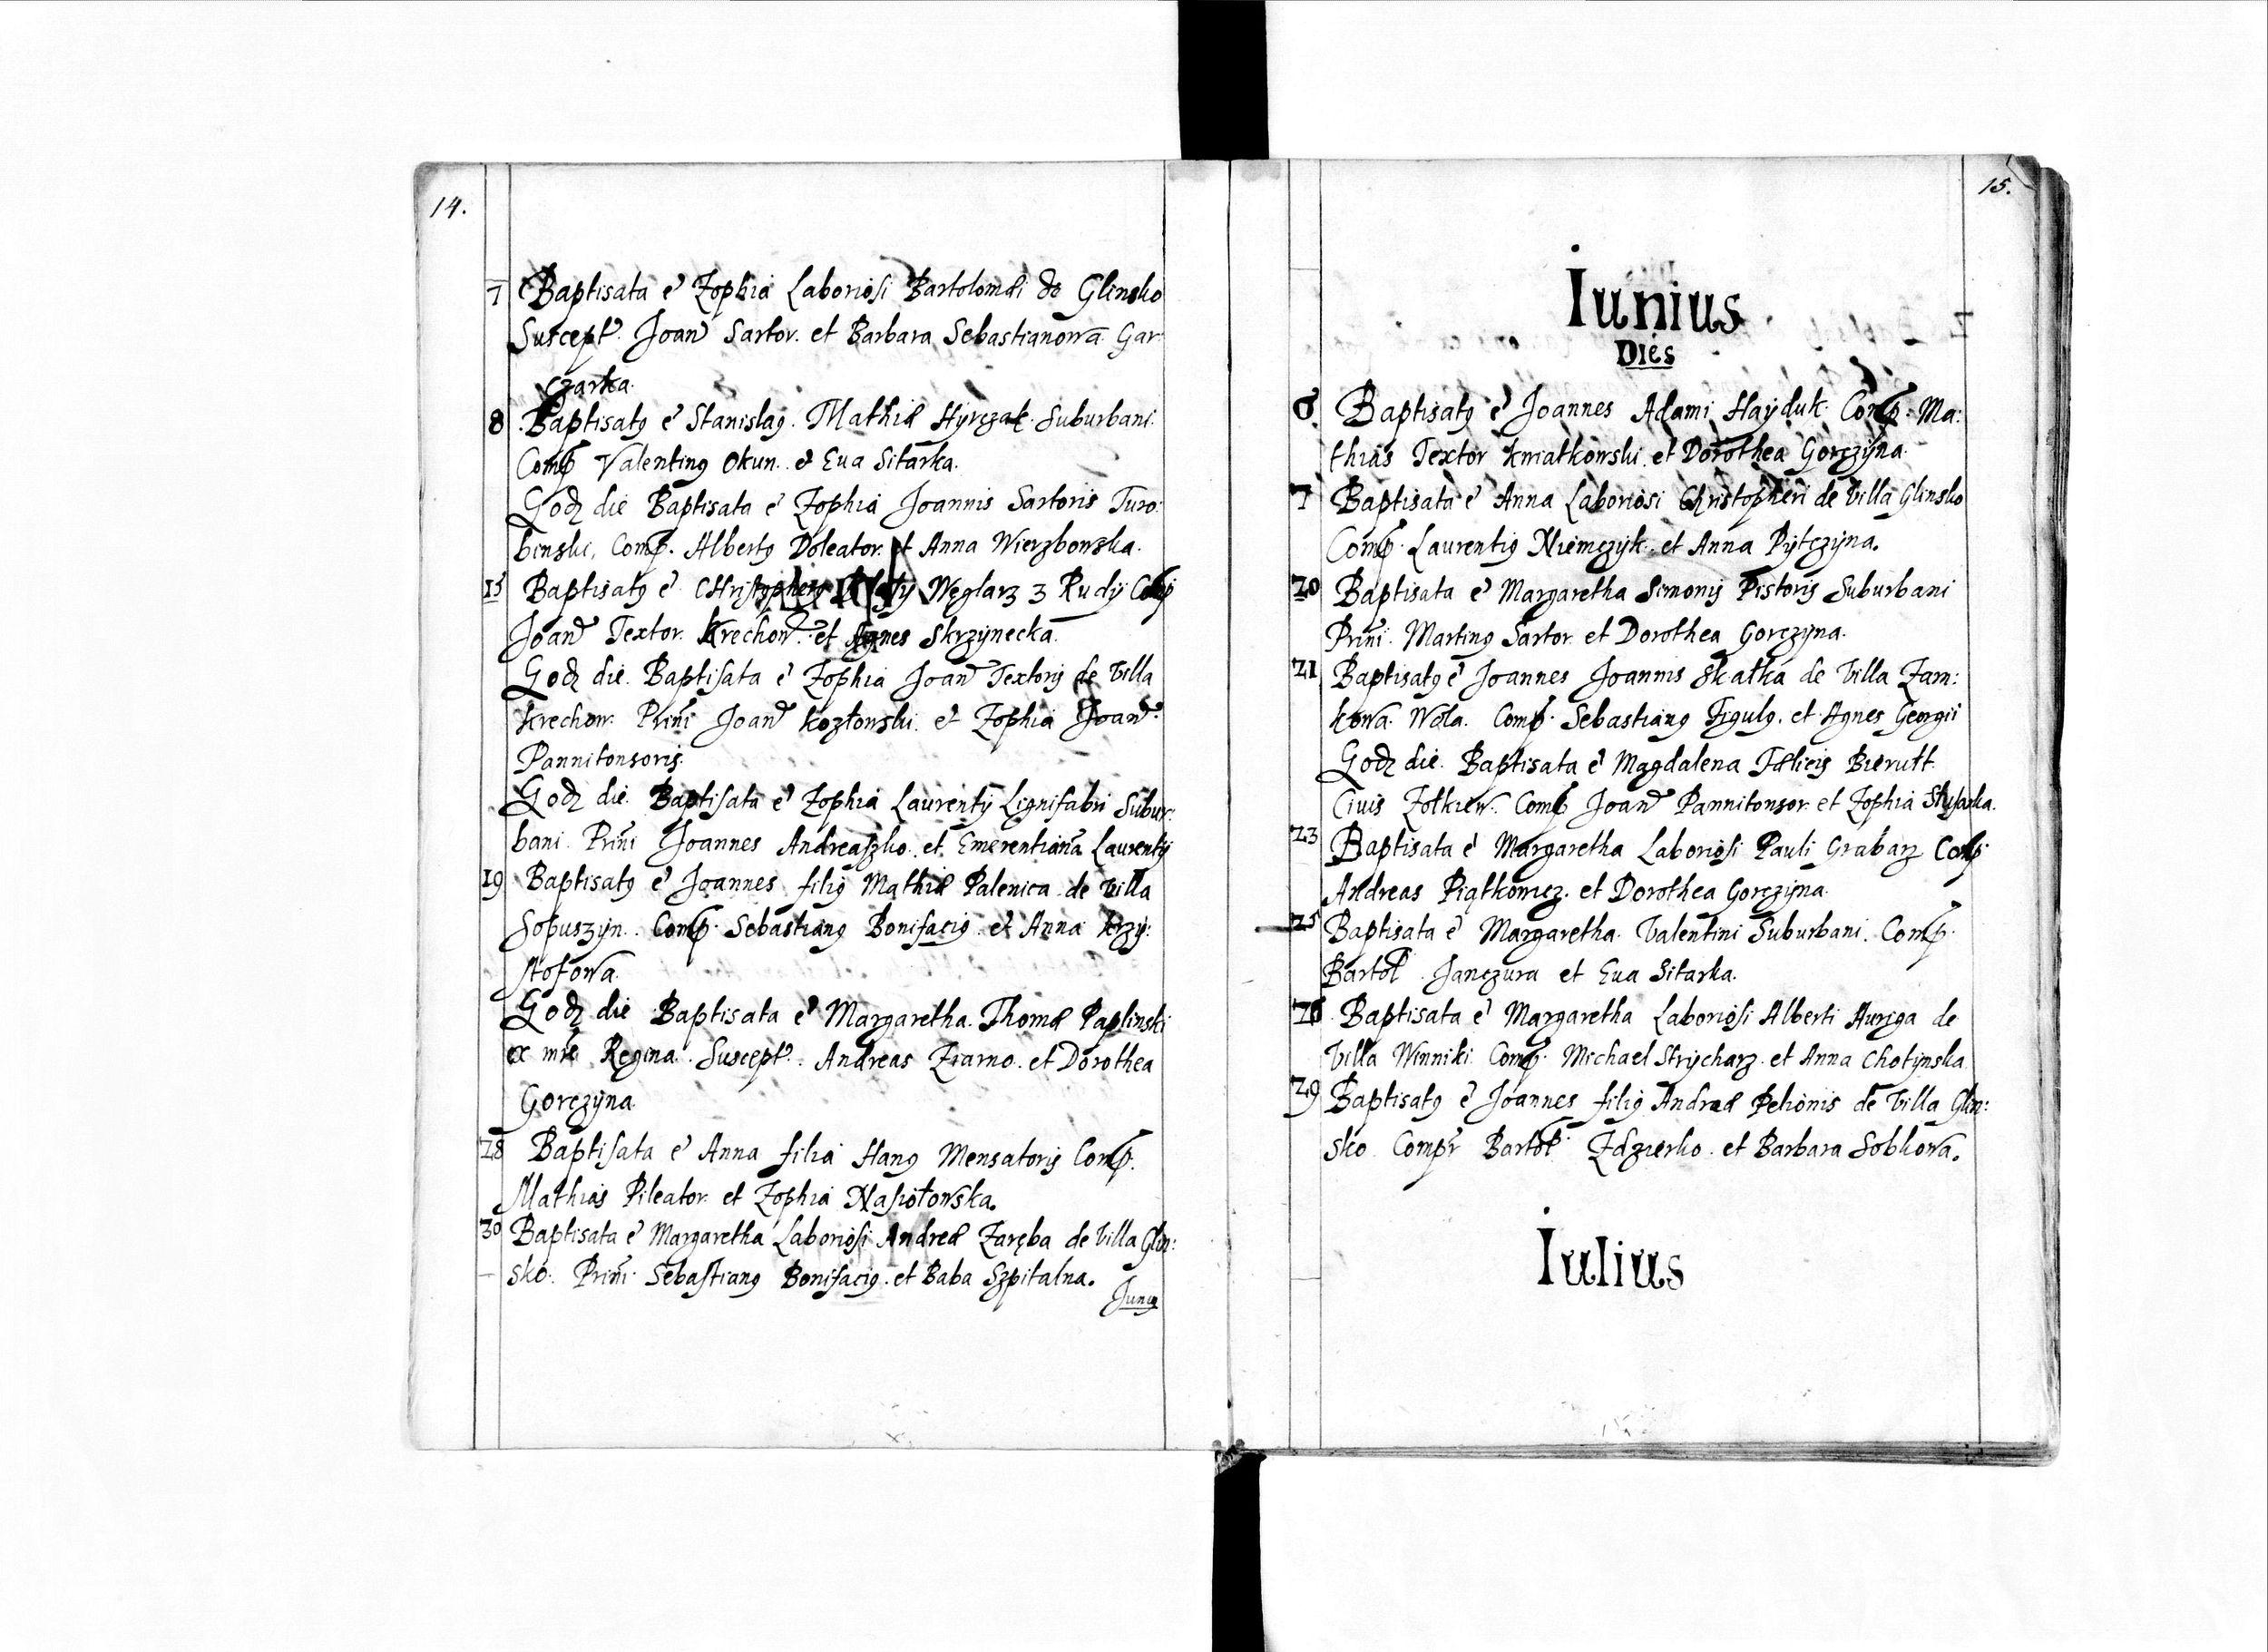 14.
7 Baptisata e Zophia Laboriosi Bartolomæi de Glinsko
Suscept. Joan Sartor. et Barbara Sebastianowa Gar-
czarka.
8 Baptisatq e Stanislaq. Mathiæ Hyrczak Suburbani.
Comp Valentinq Okun. et Eua Sitarka.
Eodz die Baptisata e Zophia Joannis Sartoris Turo:
binski, Comp. Albertq Doleator. et Anna Wierzbowska.
15 Baptisatq e CHristopherq Węglarz z Rudÿ Comp
Joan Textor. Krechow. et Agnes Skrzÿnecka.
Eodz die. Baptisata e Zophia Joan Textoris de Villa
Krechow. Prini Joan Kozłowski. et Zophia Joan.
Pannitonsoris.
Eodz die. Baptisata e Zophia Laurentÿ Lignifabri Subur:
bani. Prini Joannes Andreaszko. et Emerentiana Laurentÿ
19 Baptisatq e Joannes filiq Mathiæ Palenica de Villa
Sopuszÿn. Comp. Sebastianq Bonifaciq. et Anna Krzÿ:
stofowa.
Eodz die Baptisata e Margaretha. Thomæ Paplinski
ex mre Regina. Suscept. Andreas Ziarno. et Dorothea
Gorczÿna.
28 Baptisata e Anna filia Hanq Mensatoris Comp.
Mathias Pileator. et Zophia Nasiołowska.
30 Baptisata e Margaretha Laboriosi Andreæ Zaręba de Villa Glin:
sko. Prini. Sebastianq Bonifaciq. et Baba Szpitalna.
Juniq
15.
Iunius
Dies
6 Baptisatq e Joannes Adami Haÿduk. Comp. Ma:
thias Textor Kwiatkowski. et Dorothea Gorczÿna.
7 Baptisata e Anna Laboriosi Christopheri de Villa Glinsko
Comp. Laurentiq Niemczÿk. et Anna Pÿtczÿna.
20 Baptisata e Margaretha Simonis Pistoris Suburbani
Prini. Martinq Sartor. et Dorothea Gorczÿna.
21 Baptisatq e Joannes Joannis Skałka de Villa Zam:
kowa. Wola. Comp. Sebastianq Figulq. et Agnes Georgii
Eodz die. Baptisata e Magdalena Fælicis Bierułt
Ciuis Zołkiew. Comp Joan Pannitonsor. et Zophia
23 Baptisata e Margaretha Laboriosi Pauli Grabarz Comp.
Andreas Piątkowicz. et Dorothea Gorczÿna.
25 Baptisata e Margaretha. Valentini Suburbani. Comp.
Bartol. Janczura et Eua Sitarka.
Baptisata e Margaretha Laboriosi Alberti Auriga de
Villa Winniki. Comp. Michael Strÿcharz. et Anna Chotÿnska
29 Baptisatq e Joannes filiq Andreæ Pelionis de Villa Glin:
sko. Compr Bartol. Zdzierko. et Barbara Sobkowa.
Iulius